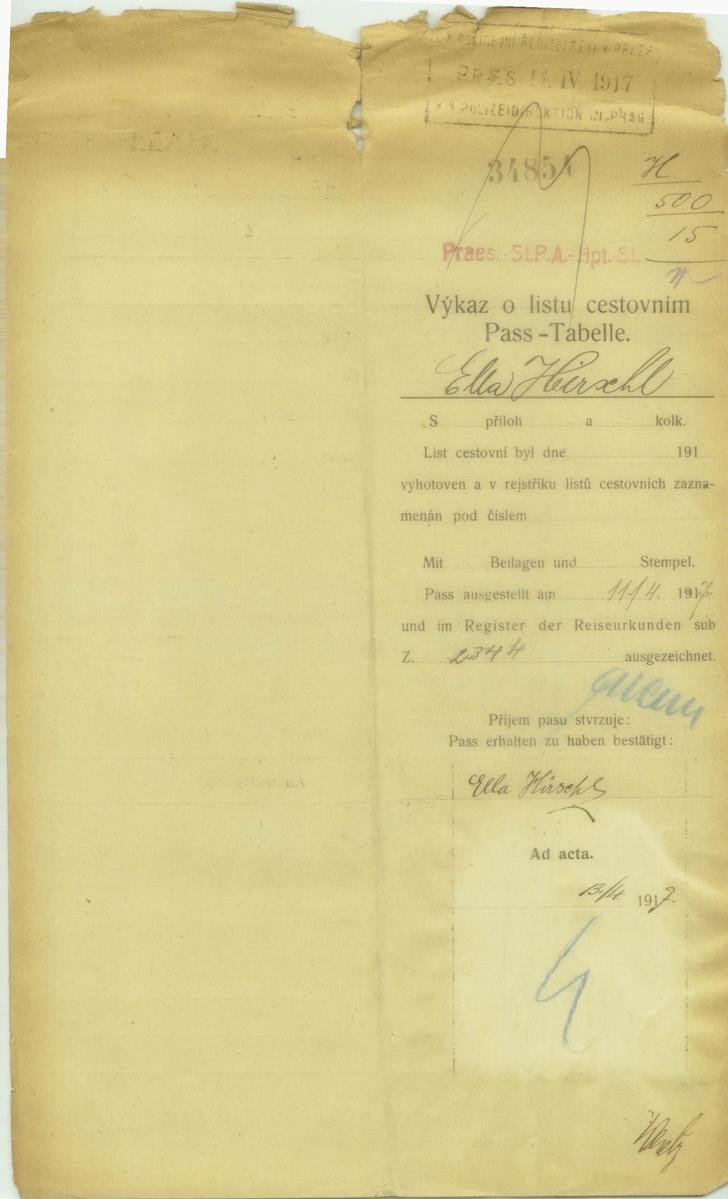 C. K. POLICEJNÍ ŘEDITELSTVÍ V PRAZE
PRÆS. 11. IV. 1917
K. K. POLIZEIDIREKTION IN PRAG
34854
H
500
15
Praes. St.P.A.-Hpt.-St.
Výkaz o listu cestovním
Pass-Tabelle.
Ella Hirschl
S příloh a kolk.
List cestovní byl dne 191
vyhotoven a v rejstříku listů cestovních zazna-
menán pod číslem
Mit Beilagen und Stempel.
Pass ausgestellt am 11/4. 1917
und im Register der Reiseurkunden sub
Z. 2344 ausgezeichnet.
Příjem pasu stvrzuje:
Pass erhalten zu haben bestätigt:
Ella Hirschl
Ad acta.
13/4 1917.